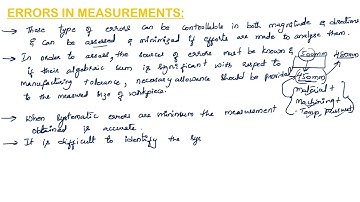 ERRORS IN MEASUREMENTS:
→ These type of errors can be controllable in both magnitude & directions
& can be assessed & minimized if efforts are made to analyse them.
→ In order to assess, the sources of errors must be known &
if their algebraic sum is significant with respect to
manufacturing tolerance, necessary allowance should be provided
to the measured size of workpiece.
→ When systematic errors are minimum the measurement
obtained is accurate.
→ It is difficult to identify the sys
material +
machining +